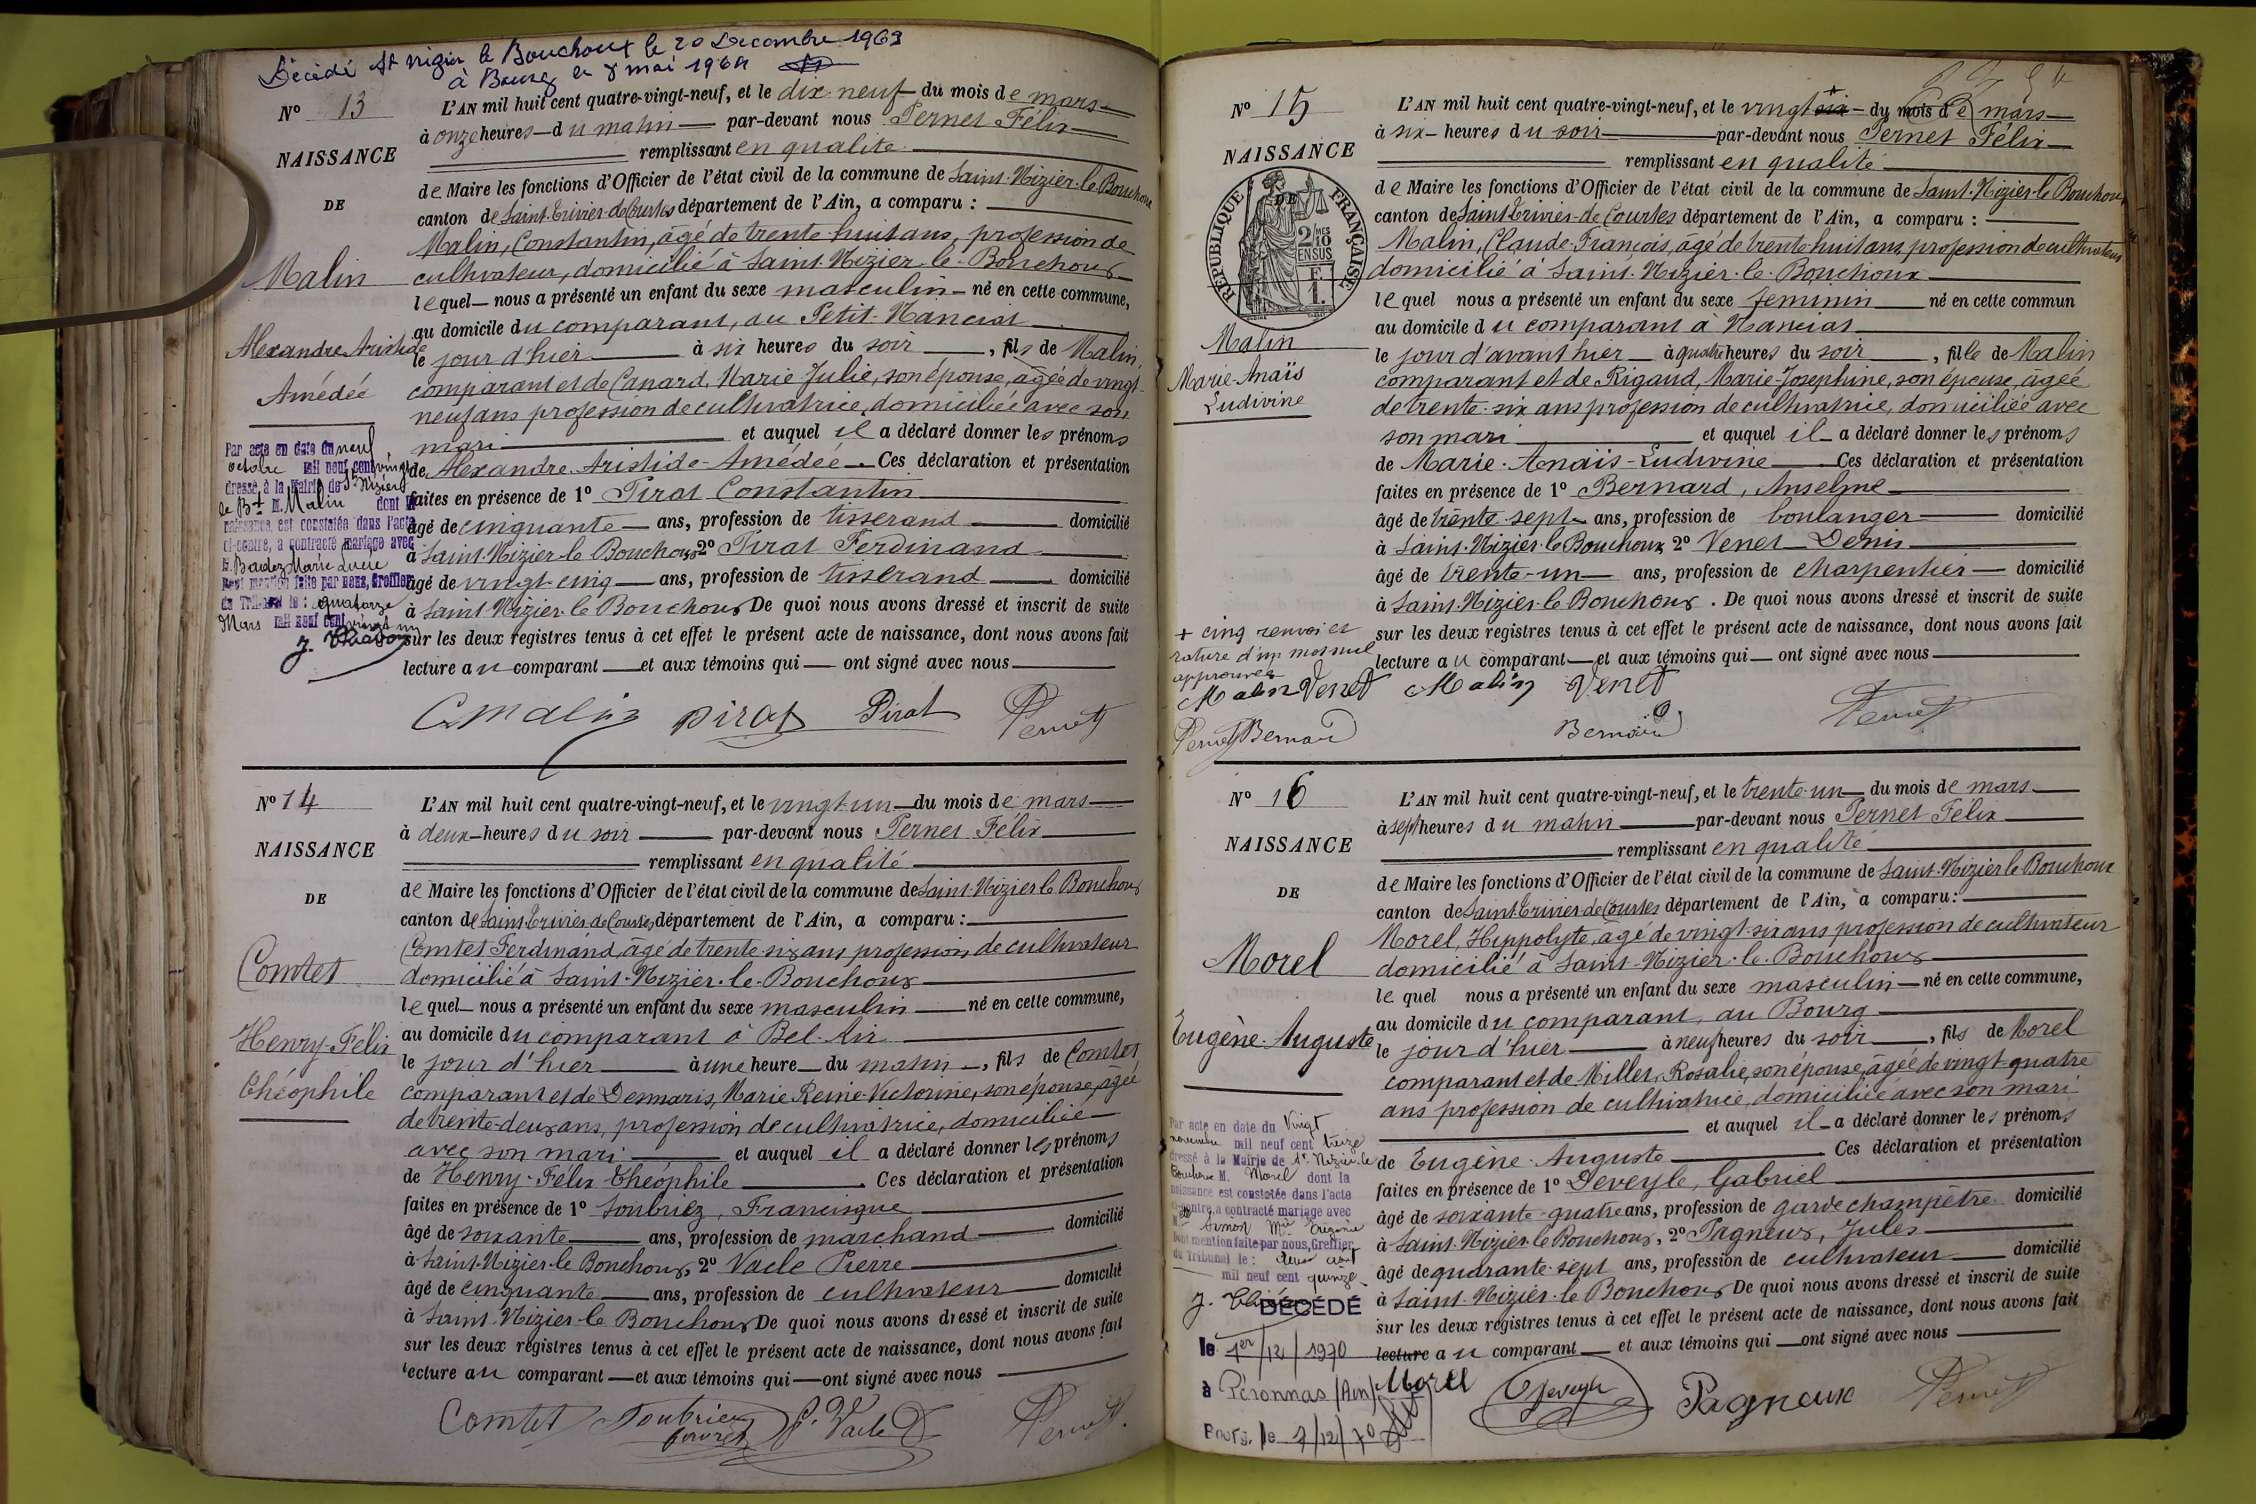 Décédé St Nizier le Bouchoux le 20 Décembre 1963
à Bourg le 8 mai 1964
N° 13
NAISSANCE
DE
Malin
Alexandre Aristide
Amédée
Par acte en date du neuf
octobre mil neuf cent vingt
dressé à la Mairie de St Nizier
le Bt M. Malin dont la
naissance est constatée dans l'acte
ci-contre, a contracté mariage avec
Marie Lucie
Dont mention faite par nous, Greffier
du Tribunal le : quatorze
Mars mil neuf cent vingt un
L'AN mil huit cent quatre-vingt-neuf, et le dix-neuf du mois de mars
à onze heures du matin par-devant nous Pernet Félix
remplissant en qualité
de Maire les fonctions d'Officier de l'état civil de la commune de Saint-Nizier-le-Bouchoux
canton de Saint-Trivier-de-Courtes département de l'Ain, a comparu :
Malin, Constantin, âgé de trente-huit ans, profession de
cultivateur, domicilié à Saint-Nizier-le-Bouchoux
lequel nous a présenté un enfant du sexe masculin né en cette commune,
au domicile du comparant, au Petit-Nanciat
le jour d'hier à six heures du soir, fils de Malin,
comparant et de Canard, Marie Julie, son épouse, âgée de vingt-
neuf ans profession de cultivatrice, domiciliée avec son
mari et auquel il a déclaré donner les prénoms
de Alexandre-Aristide-Amédée. Ces déclaration et présentation
faites en présence de 1° Pirat Constantin
âgé de cinquante ans, profession de tisserand domicilié
à Saint-Nizier-le-Bouchoux 2° Pirat Ferdinand
âgé de vingt-cinq ans, profession de tisserand domicilié
à Saint-Nizier-le-Bouchoux De quoi nous avons dressé et inscrit de suite
sur les deux registres tenus à cet effet le présent acte de naissance, dont nous avons fait
lecture au comparant et aux témoins qui ont signé avec nous
C Malin Pirat Pirat Pernet
N° 14
NAISSANCE
DE
Comtet
Henry-Félix
Théophile
L'AN mil huit cent quatre-vingt-neuf, et le vingt-un du mois de mars
à deux heures du soir par-devant nous Pernet Félix
remplissant en qualité
de Maire les fonctions d'Officier de l'état civil de la commune de Saint-Nizier-le-Bouchoux
canton de Saint-Trivier-de-Courtes département de l'Ain, a comparu :
Comtet Ferdinand, âgé de trente-six ans profession de cultivateur
domicilié à Saint-Nizier-le-Bouchoux
lequel nous a présenté un enfant du sexe masculin né en cette commune,
au domicile du comparant à Bel-Air
le jour d'hier à une heure du matin, fils de Comtet
comparant et de Desmaris, Marie Reine Victorine, son épouse, âgée
de trente-deux ans, profession de cultivatrice, domiciliée
avec son mari et auquel il a déclaré donner les prénoms
de Henry-Félix-Théophile. Ces déclaration et présentation
faites en présence de 1° Soubriez, Francisque
âgé de soixante ans, profession de marchand domicilié
à Saint-Nizier-le-Bouchoux, 2° Vacle Pierre
âgé de cinquante ans, profession de cultivateur domicilié
à Saint-Nizier-le-Bouchoux De quoi nous avons dressé et inscrit de suite
sur les deux registres tenus à cet effet le présent acte de naissance, dont nous avons fait
lecture au comparant et aux témoins qui ont signé avec nous
Comtet Soubriez P. Vacle Pernet
N° 15
NAISSANCE
DE
RÉPUBLIQUE FRANÇAISE
2 MES
10
EN SUS
F.
1.
Malin
Marie-Anaïs
Ludivine
L'AN mil huit cent quatre-vingt-neuf, et le vingt six du mois de mars
à six heures du soir par-devant nous Pernet Félix
remplissant en qualité
de Maire les fonctions d'Officier de l'état civil de la commune de Saint-Nizier-le-Bouchoux
canton de Saint-Trivier-de-Courtes département de l'Ain, a comparu :
Malin, Claude-François, âgé de trente-huit ans, profession de cultivateur
domicilié à Saint-Nizier-le-Bouchoux
lequel nous a présenté un enfant du sexe féminin né en cette commun
au domicile du comparant à Nanciat
le jour d'avant hier à quatre heures du soir, fille de Malin
comparant et de Rigaud, Marie-Joséphine, son épouse, âgée
de trente-six ans profession de cultivatrice, domiciliée avec
son mari et auquel il a déclaré donner les prénoms
de Marie-Anaïs-Ludivine Ces déclaration et présentation
faites en présence de 1° Bernard, Anselme
âgé de trente-sept ans, profession de boulanger domicilié
à Saint-Nizier-le-Bouchoux 2° Venet Denis
âgé de trente-un ans, profession de charpentier domicilié
à Saint-Nizier-le-Bouchoux. De quoi nous avons dressé et inscrit de suite
sur les deux registres tenus à cet effet le présent acte de naissance, dont nous avons fait
lecture au comparant et aux témoins qui ont signé avec nous
+ cinq renvoi et
rature d'un mot nul
approuvés
Malin Venet Malin Venet
Pernet Bernard Bernard Pernet
N° 16
NAISSANCE
DE
Morel
Eugène-Auguste
L'AN mil huit cent quatre-vingt-neuf, et le trente-un du mois de mars
à sept heures du matin par-devant nous Pernet Félix
remplissant en qualité
de Maire les fonctions d'Officier de l'état civil de la commune de Saint-Nizier-le-Bouchoux
canton de Saint-Trivier-de-Courtes département de l'Ain, a comparu :
Morel, Hippolyte, âgé de vingt-six ans profession de cultivateur
domicilié à Saint-Nizier-le-Bouchoux
lequel nous a présenté un enfant du sexe masculin né en cette commune,
au domicile du comparant, au Bourg
le jour d'hier à neuf heures du soir, fils de Morel
comparant et de Millet, Rosalie, son épouse, âgée de vingt-quatre
ans profession de cultivatrice, domiciliée avec son mari
et auquel il a déclaré donner les prénoms
de Eugène-Auguste Ces déclaration et présentation
faites en présence de 1° Deveyle, Gabriel
âgé de soixante-quatre ans, profession de garde champêtre domicilié
à Saint-Nizier-le-Bouchoux, 2° Pagneux, Jules
âgé de quarante-sept ans, profession de cultivateur domicilié
à Saint-Nizier-le-Bouchoux De quoi nous avons dressé et inscrit de suite
sur les deux registres tenus à cet effet le présent acte de naissance, dont nous avons fait
lecture au comparant et aux témoins qui ont signé avec nous
Par acte en date du Vingt
novembre mil neuf cent treize
dressé à la Mairie de St Nizier-le
Bouchoux M. Morel dont la
naissance est constatée dans l'acte
ci-contre, a contracté mariage avec
Mlle
Dont mention faite par nous, Greffier
du Tribunal le : deux août
mil neuf cent quinze
DÉCÉDÉ
le 1er/12/1970
à Péronnas (Ain)
Bourg, le 7/12/70
Morel Deveyle Pagneux Pernet